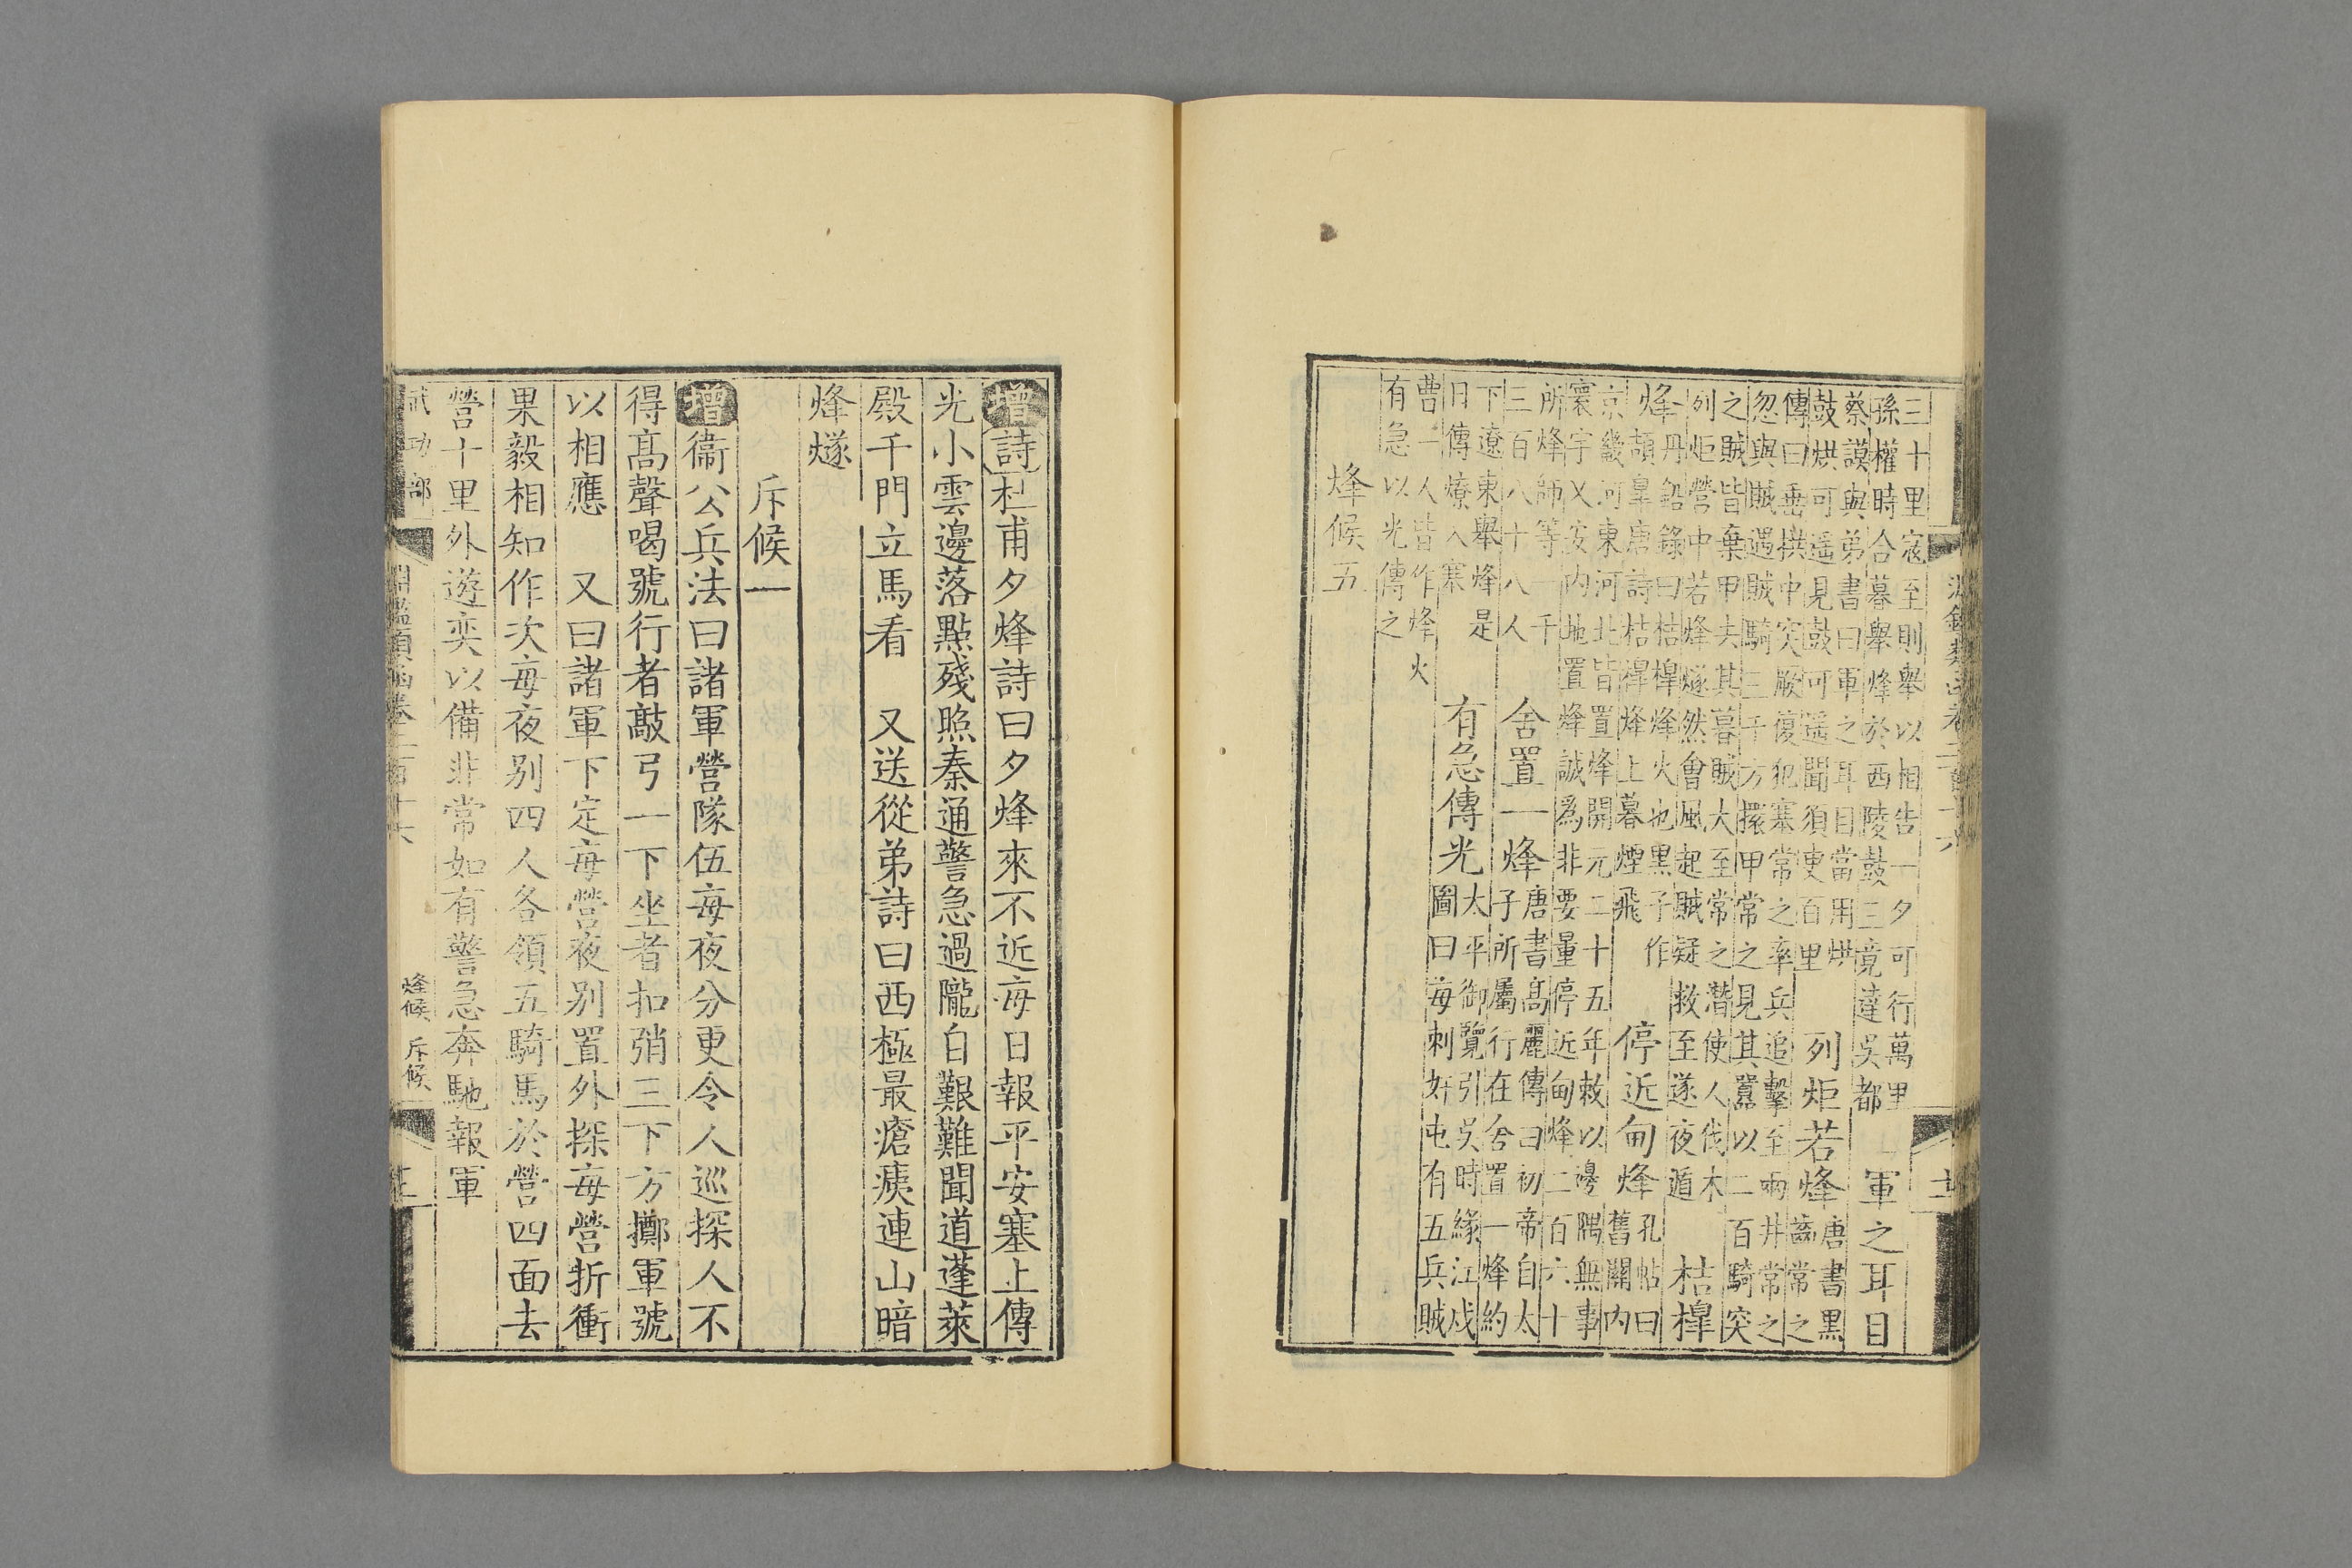 三十里寇至則舉以相告一夕可行萬里
孫權時合暮舉烽於西陵鼓三竟達吳都
軍之耳目
蔡謨與弟書曰軍之耳目當用烘
鼓烘可遥見鼓可遥聞須臾百里
列炬若烽
唐書黑
齒常之
傳曰垂拱中突厥復犯塞常之率兵追擊至兩井常之
忽與賊遇賊騎三千方擐甲常之見其囂以二百騎突
之賊皆棄甲去其暮賊大至常之潜使人伐木
列炬營中若烽燧然會風起賊疑救至遂夜遁
桔槔
烽
丹鉛錄曰桔槔烽火也黑子作
頡皐唐詩桔槔烽上暮煙飛
停近甸烽
孔帖曰
舊關内
京畿河東河北皆置烽開元二十五年敕以邊隅無事
寰宇乂安内地置烽誠爲非要量停近甸烽二百六十
所烽師等一千
三百八十八人
舍置一烽
唐書高麗傳曰初帝自太
子所屬行在舍置一烽約
下遼東舉烽是
日傳燎入塞
有急傳光
太平御覽引吳時緣江戍
圖曰每刺奸屯有五兵賊
曹一人皆作烽火
有急以光傳之
烽候五
增詩杜甫夕烽詩曰夕烽來不近每日報平安塞上傳
光小雲邊落點殘照秦通警急過隴自艱難聞道蓬萊
殿千門立馬看 又送從弟詩曰西極最瘡痍連山暗
烽燧
斥候一
增衞公兵法曰諸軍營隊伍每夜分更令人巡探人不
得高聲喝號行者敲弓一下坐者扣矟三下方擲軍號
以相應 又曰諸軍下定每營夜别置外探每營折衝
果毅相知作次每夜别四人各領五騎馬於營四面去
營十里外遊奕以備非常如有警急奔馳報軍
武功部
淵鑑類函卷二百十六
烽候 斥候